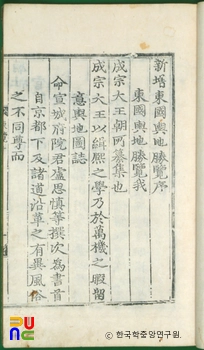 新增東國輿地勝覽序
東國輿地勝覽我
成宗大王朝所纂集也
成宗大王以緝熙之學乃於萬機之暇留
意輿地圖誌
命宣城府院君盧思愼等撰次爲書首
自京都下及諸道沿革之有異風俗
之不同尊而
한국학중앙연구원